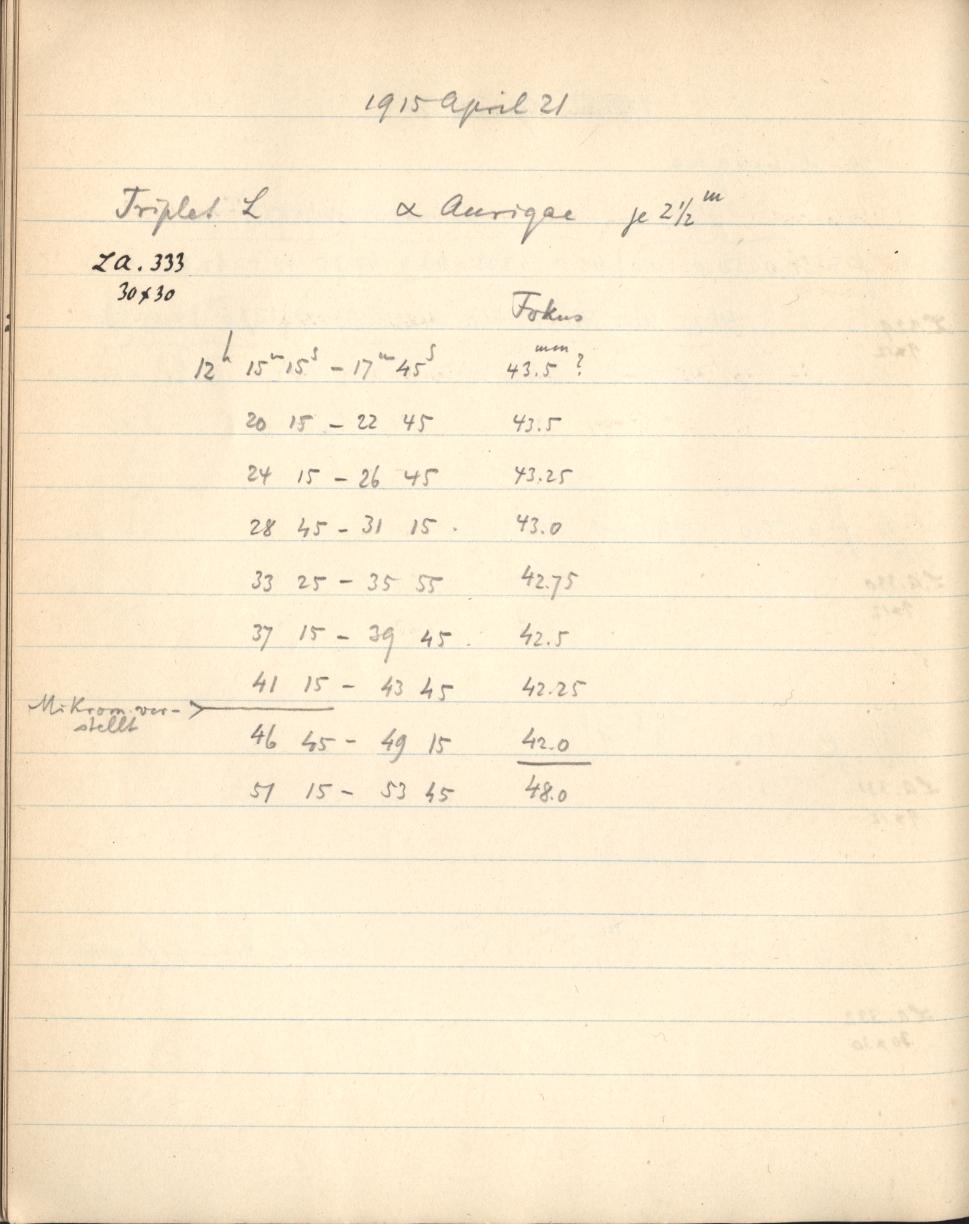 1915 April 21
Triplet L α Aurigae je 2½ᵐ
LA. 333
30x30
Fokus
12ʰ 15ᵐ 15ˢ – 17ᵐ 45ˢ 43.5ᵐᵐ ?
20 15 – 22 45 43.5
24 15 – 26 45 43.25
28 45 – 31 15 . 43.0
33 25 – 35 55 42.75
37 15 – 39 45 . 42.5
41 15 – 43 45 42.25
Mikrom. ver-
stellt
46 45 – 49 15 42.0
51 15 – 53 45 48.0